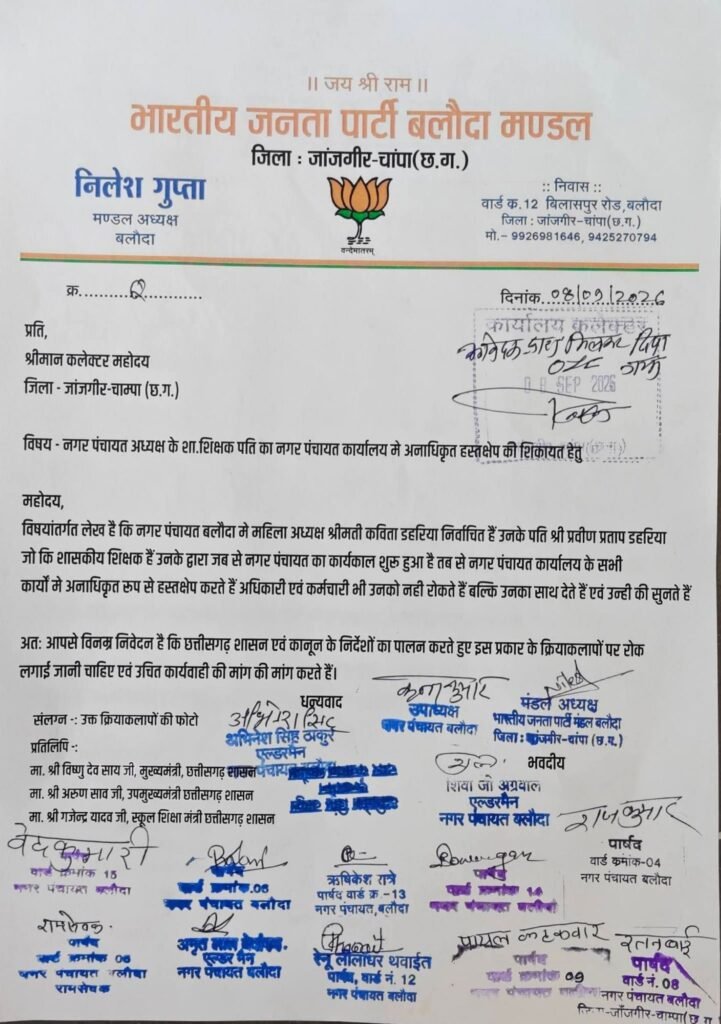 ॥ जय श्री राम ॥
भारतीय जनता पार्टी बलौदा मण्डल
जिला : जांजगीर-चांपा(छ.ग.)
निलेश गुप्ता
मण्डल अध्यक्ष
बलौदा
वन्देमातरम्
:: निवास ::
वार्ड क.12 बिलासपुर रोड,बलौदा
जिला : जांजगीर-चांपा(छ.ग.)
मो.- 9926981646, 9425270794
क्र...........2............
दिनांक...08/09/2026
प्रति,
श्रीमान कलेक्टर महोदय
जिला - जांजगीर-चाम्पा (छ.ग.)
कार्यालय कलेक्टर
08 SEP 2026
विषय - नगर पंचायत अध्यक्ष के शा.शिक्षक पति का नगर पंचायत कार्यालय मे अनाधिकृत हस्तक्षेप की शिकायत हेतु
महोदय,
विषयांतर्गत लेख है कि नगर पंचायत बलौदा मे महिला अध्यक्ष श्रीमती कविता डहरिया निर्वाचित हैं उनके पति श्री प्रवीण प्रताप डहरिया
जो कि शासकीय शिक्षक हैं उनके द्वारा जब से नगर पंचायत का कार्यकाल शुरु हुआ है तब से नगर पंचायत कार्यालय के सभी
कार्यों मे अनाधिकृत रूप से हस्तक्षेप करते हैं अधिकारी एवं कर्मचारी भी उनको नही रोकते हैं बल्कि उनका साथ देते हैं एवं उन्ही की सुनते हैं
अतः आपसे विनम्र निवेदन है कि छत्तीसगढ़ शासन एवं कानून के निर्देशों का पालन करते हुए इस प्रकार के क्रियाकलापों पर रोक
लगाई जानी चाहिए एवं उचित कार्यवाही की मांग की मांग करते हैं।
धन्यवाद
संलग्न -: उक्त क्रियाकलापों की फोटो
प्रतिलिपि -:
मा. श्री विष्णु देव साय जी, मुख्यमंत्री, छत्तीसगढ़ शासन
मा. श्री अरुण साव जी, उपमुख्यमंत्री छत्तीसगढ़ शासन
मा. श्री गजेन्द्र यादव जी, स्कूल शिक्षा मंत्री छत्तीसगढ़ शासन
अभिनेश सिंह ठाकुर
एल्डरमैन
उपाध्यक्ष
नगर पंचायत बलौदा
मंडल अध्यक्ष
भारतीय जनता पार्टी मंडल बलौदा
जिला: जांजगीर-चांपा (छ.ग.)
भवदीय
शिवा जी अग्रवाल
एल्डरमैन
नगर पंचायत बलौदा
राजकुमार
पार्षद
वार्ड कमांक-04
नगर पंचायत बलौदा
वेदकुमारी
वार्ड क्रमांक 15
नगर पंचायत बलौदा
पार्षद
नगर पंचायत बलौदा
ऋषिकेश रात्रे
पार्षद वार्ड क्र.-13
नगर पंचायत,बलौदा
पार्षद
वार्ड क्रमांक 14
रामसेवक
पार्षद
नगर पंचायत बलौदा
रामसेवक
एल्डर मैन
नगर पंचायत बलौदा
रेनू लीलाधर थवाईत
पार्षद, वार्ड नं. 12
नगर पंचायत बलौदा
पार्षद
वार्ड क्रमांक 09
रतनबाई
पार्षद
वार्ड नं. 08
नगर पंचायत बलौदा
जिला-जाँजगीर-चाम्पा (छ.ग.)